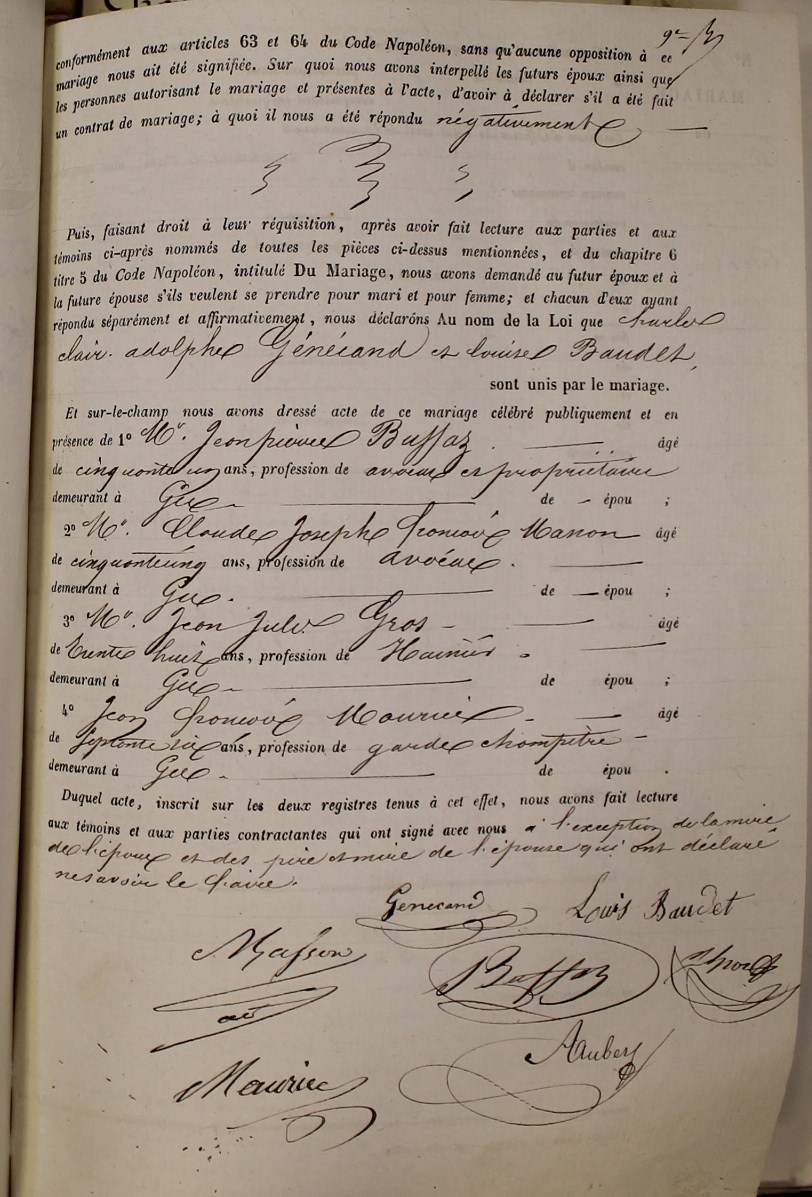 conformément aux articles 63 et 64 du Code Napoléon, sans qu'aucune opposition à ce
mariage nous ait été signifiée. Sur quoi nous avons interpellé les futurs époux ainsi que
les personnes autorisant le mariage et présentes à l'acte, d'avoir à déclarer s'il a été fait
un contrat de mariage; à quoi il nous a été répondu négativement
Puis, faisant droit à leur réquisition, après avoir fait lecture aux parties et aux
témoins ci-après nommés de toutes les pièces ci-dessus mentionnées, et du chapitre 6
titre 5 du Code Napoléon, intitulé Du Mariage, nous avons demandé au futur époux et à
la future épouse s'ils veulent se prendre pour mari et pour femme; et chacun d'eux ayant
répondu séparément et affirmativement, nous déclarons Au nom de la Loi que Charles
clair. adolphe Génécand et Louise Baudet,
sont unis par le mariage.
Et sur-le-champ nous avons dressé acte de ce mariage célébré publiquement et en
présence de 1º Mr. Jean pierre Buffaz. — âgé
de cinquante un ans, profession de avocat et propriétaire
demeurant à Gex — de — épou ;
2º Mr. Claude Joseph françois Masson âgé
de cinquante cinq ans, profession de avocat. —
demeurant à Gex. — de — épou ;
3º Mr. Jean Jules Gros — âgé
de trente huit ans, profession de —
demeurant à Gex — de épou ;
4º Jean françois Maurice — âgé
de Septante six ans, profession de garde champêtre —
demeurant à Gex — de épou .
Duquel acte, inscrit sur les deux registres tenus à cet effet, nous avons fait lecture
aux témoins et aux parties contractantes qui ont signé avec nous à l'exception de la mère
de l'époux et des père et mère de l'épouse qui ont déclaré
ne savoir le faire.
Genecand Louis Baudet
Masson Buffaz
av
Maurice